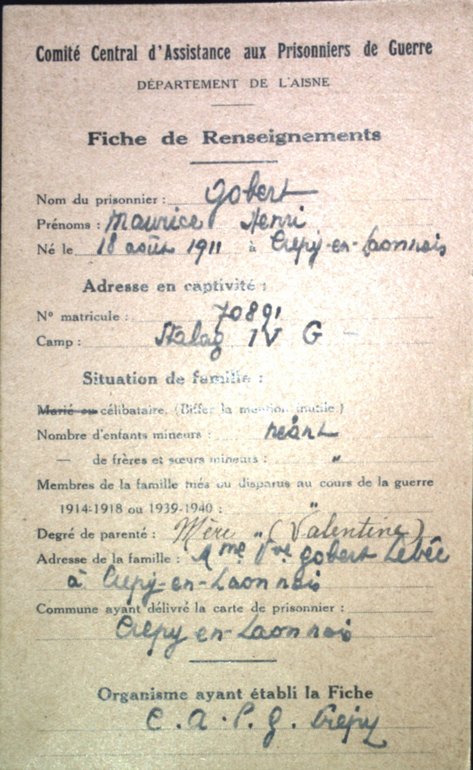 Comité Central d'Assistance aux Prisonniers de Guerre
DÉPARTEMENT DE L'AISNE
Fiche de Renseignements
Nom du prisonnier : Gobert
Prénoms : Maurice Henri
Né le 18 août 1911 à Crépy-en-Laonnois
Adresse en captivité :
N° matricule : 70891
Camp : Stalag IV G -
Situation de famille :
Marié ou célibataire. (Biffer la mention inutile.)
Nombre d'enfants mineurs : néant
— de frères et sœurs mineurs : "
Membres de la famille tués ou disparus au cours de la guerre
1914-1918 ou 1939-1940 : "
Degré de parenté : Mère " (Valentine)
Adresse de la famille : Mme Vve Gobert Levêc
à Crépy-en-Laonnois
Commune ayant délivré la carte de prisonnier :
Crépy en-Laonnois
Organisme ayant établi la Fiche
C. A. P. G. Crépy